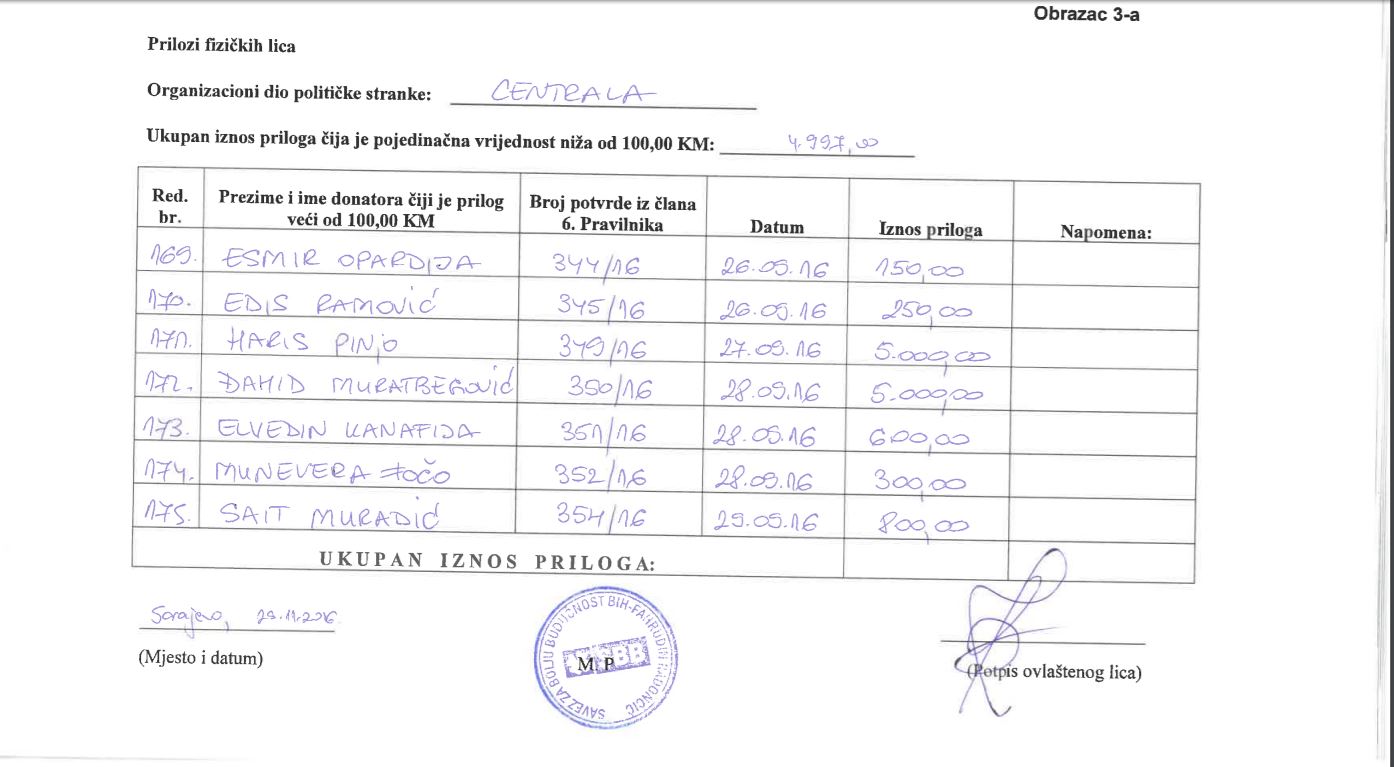 Obrazac 3-a
Prilozi fizičkih lica
Organizacioni dio političke stranke: CENTRALA
Ukupan iznos priloga čija je pojedinačna vrijednost niža od 100,00 KM: 4.997,00
Red. br. Prezime i ime donatora čiji je prilog veći od 100,00 KM Broj potvrde iz člana 6. Pravilnika Datum Iznos priloga Napomena:
169. ESMIR OPARDIJA 344/16 26.09.16 150,00
170. EDIS RAMOVIĆ 345/16 26.09.16 250,00
171. HARIS PINJO 349/16 27.09.16 5.000,00
172. ĐAHID MURATBEGOVIĆ 350/16 28.09.16 5.000,00
173. ELVEDIN KANAFIJA 351/16 28.09.16 600,00
174. MUNEVERA FOČO 352/16 28.09.16 300,00
175. SAIT MURADIĆ 354/16 29.09.16 800,00
UKUPAN IZNOS PRILOGA:
Sarajevo, 29.11.2016.
(Mjesto i datum)
SAVEZ ZA BOLJU BUDUĆNOST BIH-FAHRUDIN RADONČIĆ
SBB
M.P
(Potpis ovlaštenog lica)